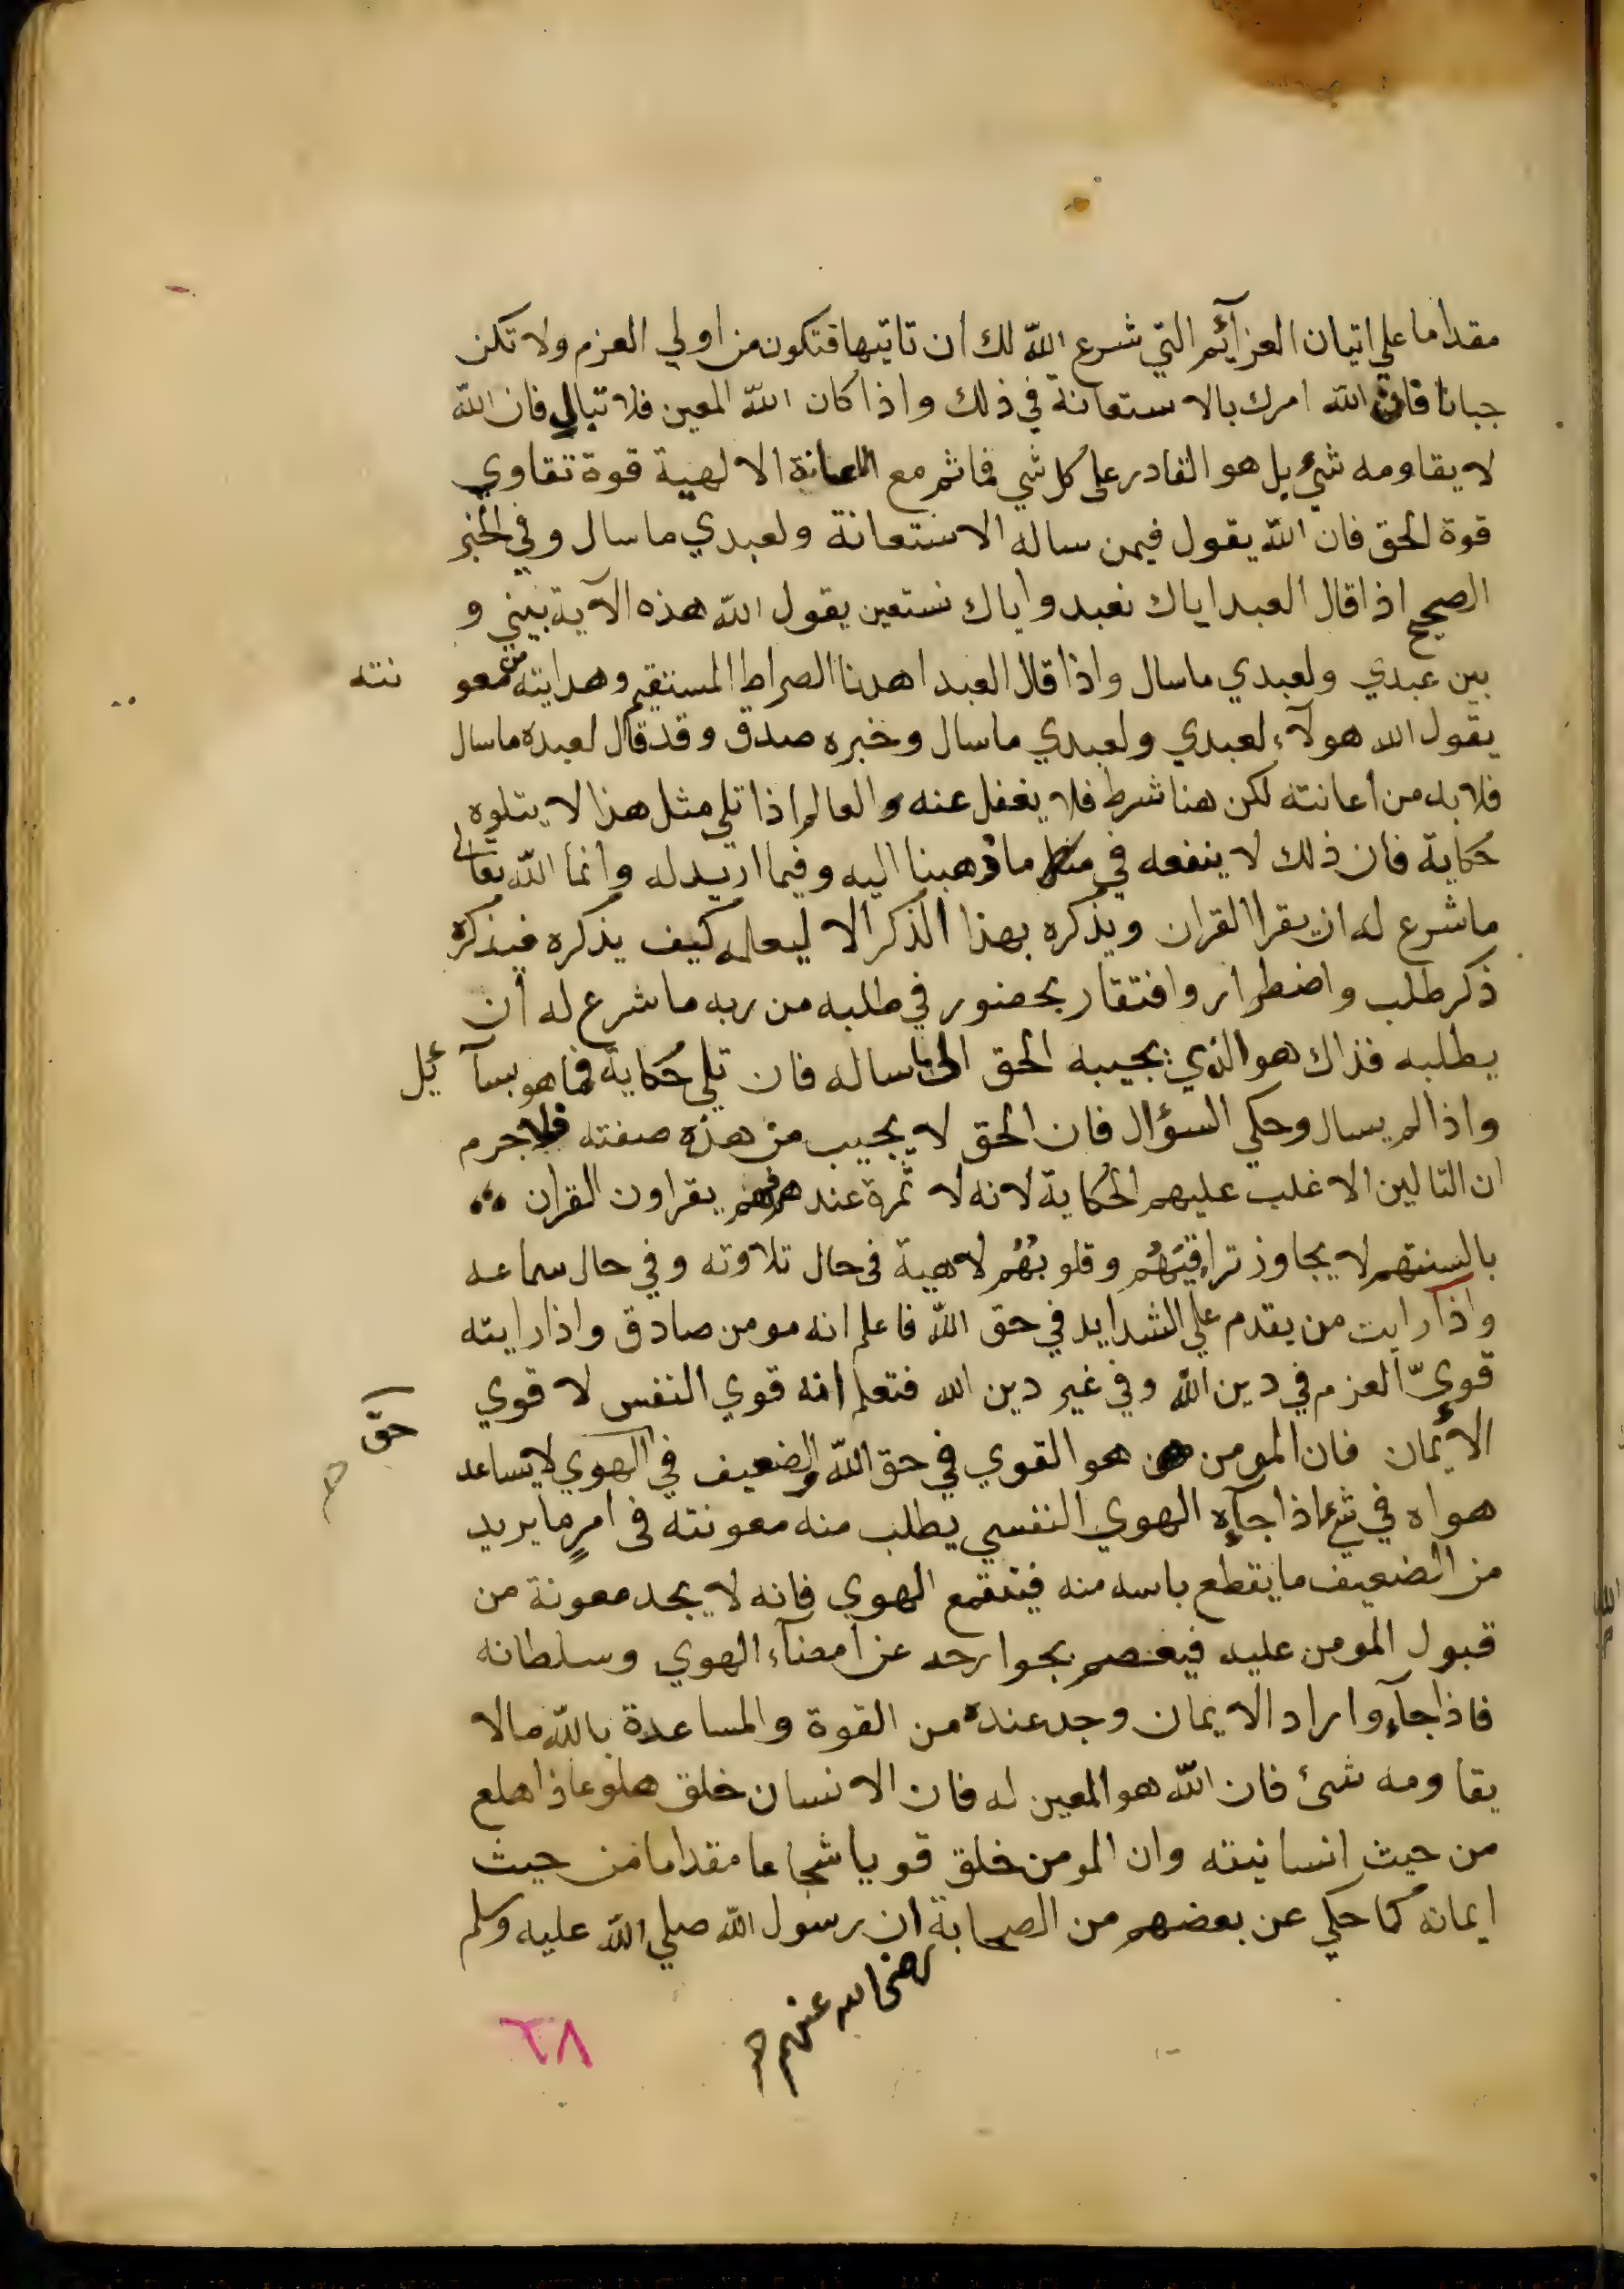 مقداما علي اتيان العزآئم التي شرع الله لك ان تاتيها فتكون من اولي العزم ولا تكن
جبانا فان الله امرك بالاستعانة في ذلك واذا كان الله المعين فلا تبالي فان الله
لا يقاومه شيء بل هو القادر على كل شي فما ثم مع الاعانة الالهية قوة تقاوي
قوة الحق فان الله يقول فيمن ساله الاستعانة ولعبدي ما سال وفي الخبر
الصحيح اذا قال العبد اياك نعبد واياك نستعين يقول الله هذه الآية بيني و
بين عبدي ولعبدي ما سال واذا قال العبد اهدنا الصراط المستقيم وهدايته من معو نته
يقول الله هولآء لعبدي ولعبدي ما سال وخبره صدق وقد قال لعبده ما سال
فلا بد من اعانته لكن هنا شرط فلا يغفل عنه والعالم اذا تلي مثل هذا لا يتلوه
حكاية فان ذلك لا ينفعه في ما ذهبنا اليه وفيما اريد له وانما الله تعالى
ما شرع له ان يقرا القران ويذكره بهذا الذكر الا ليعلمه كيف يذكره فيذكره
ذكر طلب واضطرار وافتقار بحضور في طلبه من ربه ما شرع له ان
يطلبه فذاك هو الذي يجيبه الحق ساله فان تلي حكاية فما هو بسآ ئل
واذا لم يسال وحكي السؤال فان الحق لا يجيب من هذه صفته فلا جرم
ان التالين الاغلب عليهم الحكاية لانه لا ثمرة عندهم فهم يقراون القران
بالسنتهم لا يجاوز تراقيَهُم وقلوبُهُم لاهية في حال تلاوته وفي حال سماعه
واذا رايت من يقدم علي الشدايد في حق الله فاعلم انه مومن صادق واذا رايته
قويّ العزم في دين الله وفي غير دين الله فتعلم انه قوي النفس لا قوي
الايمان فان المومن هو القوي في حق الله والضعيف في حق الهوي لا يساعد
هواه في شيء اذا جآه الهوي النفسي يطلب منه معونته في امرٍ ما يريد
من الضعيف ما يقطع ياسه منه فينقمع الهوي فانه لا يجد معونة من
قبول المومن عليه فيعصم بجوارحه عن امضآء الهوي وسلطانه
فاذا جآه وارد الايمان وجد عنده من القوة والمساعدة بالله ما لا
يقاومه شئ فان الله هو المعين له فان الانسان خلق هلوعا اذا هلع
من حيث انسانيته وان المومن خلق قويا شجاعا مقداما من حيث
ايمانه كما حكي عن بعضهم من الصحابة ان رسول الله صلي الله عليه وسلم
رضي الله عنهم صح
٦٨